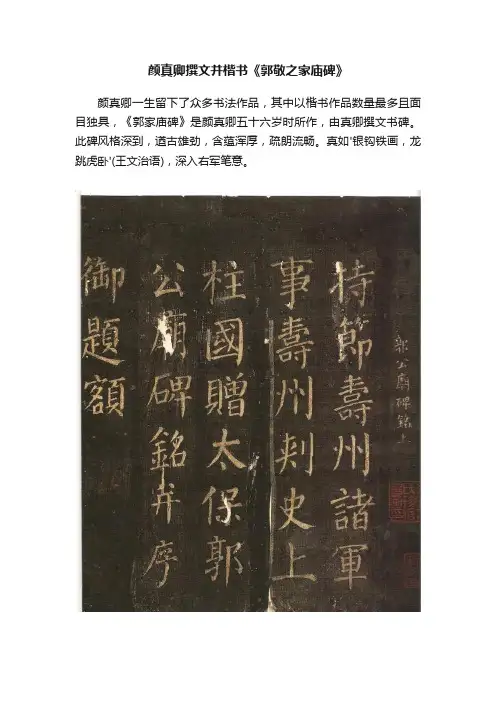 颜真卿撰文并楷书《郭敬之家庙碑》
颜真卿一生留下了众多书法作品，其中以楷书作品数量最多且面
目独具，《郭家庙碑》是颜真卿五十六岁时所作，由真卿撰文书碑。
此碑风格深到，遒古雄劲，含蕴浑厚，疏朗流畅。真如'银钩铁画，龙
跳虎卧'(王文治语)，深入右军笔意。
郭公廟碑銘上
持節壽州諸軍
事壽州刺史上
柱國贈太保郭
公廟碑銘并序
御題額